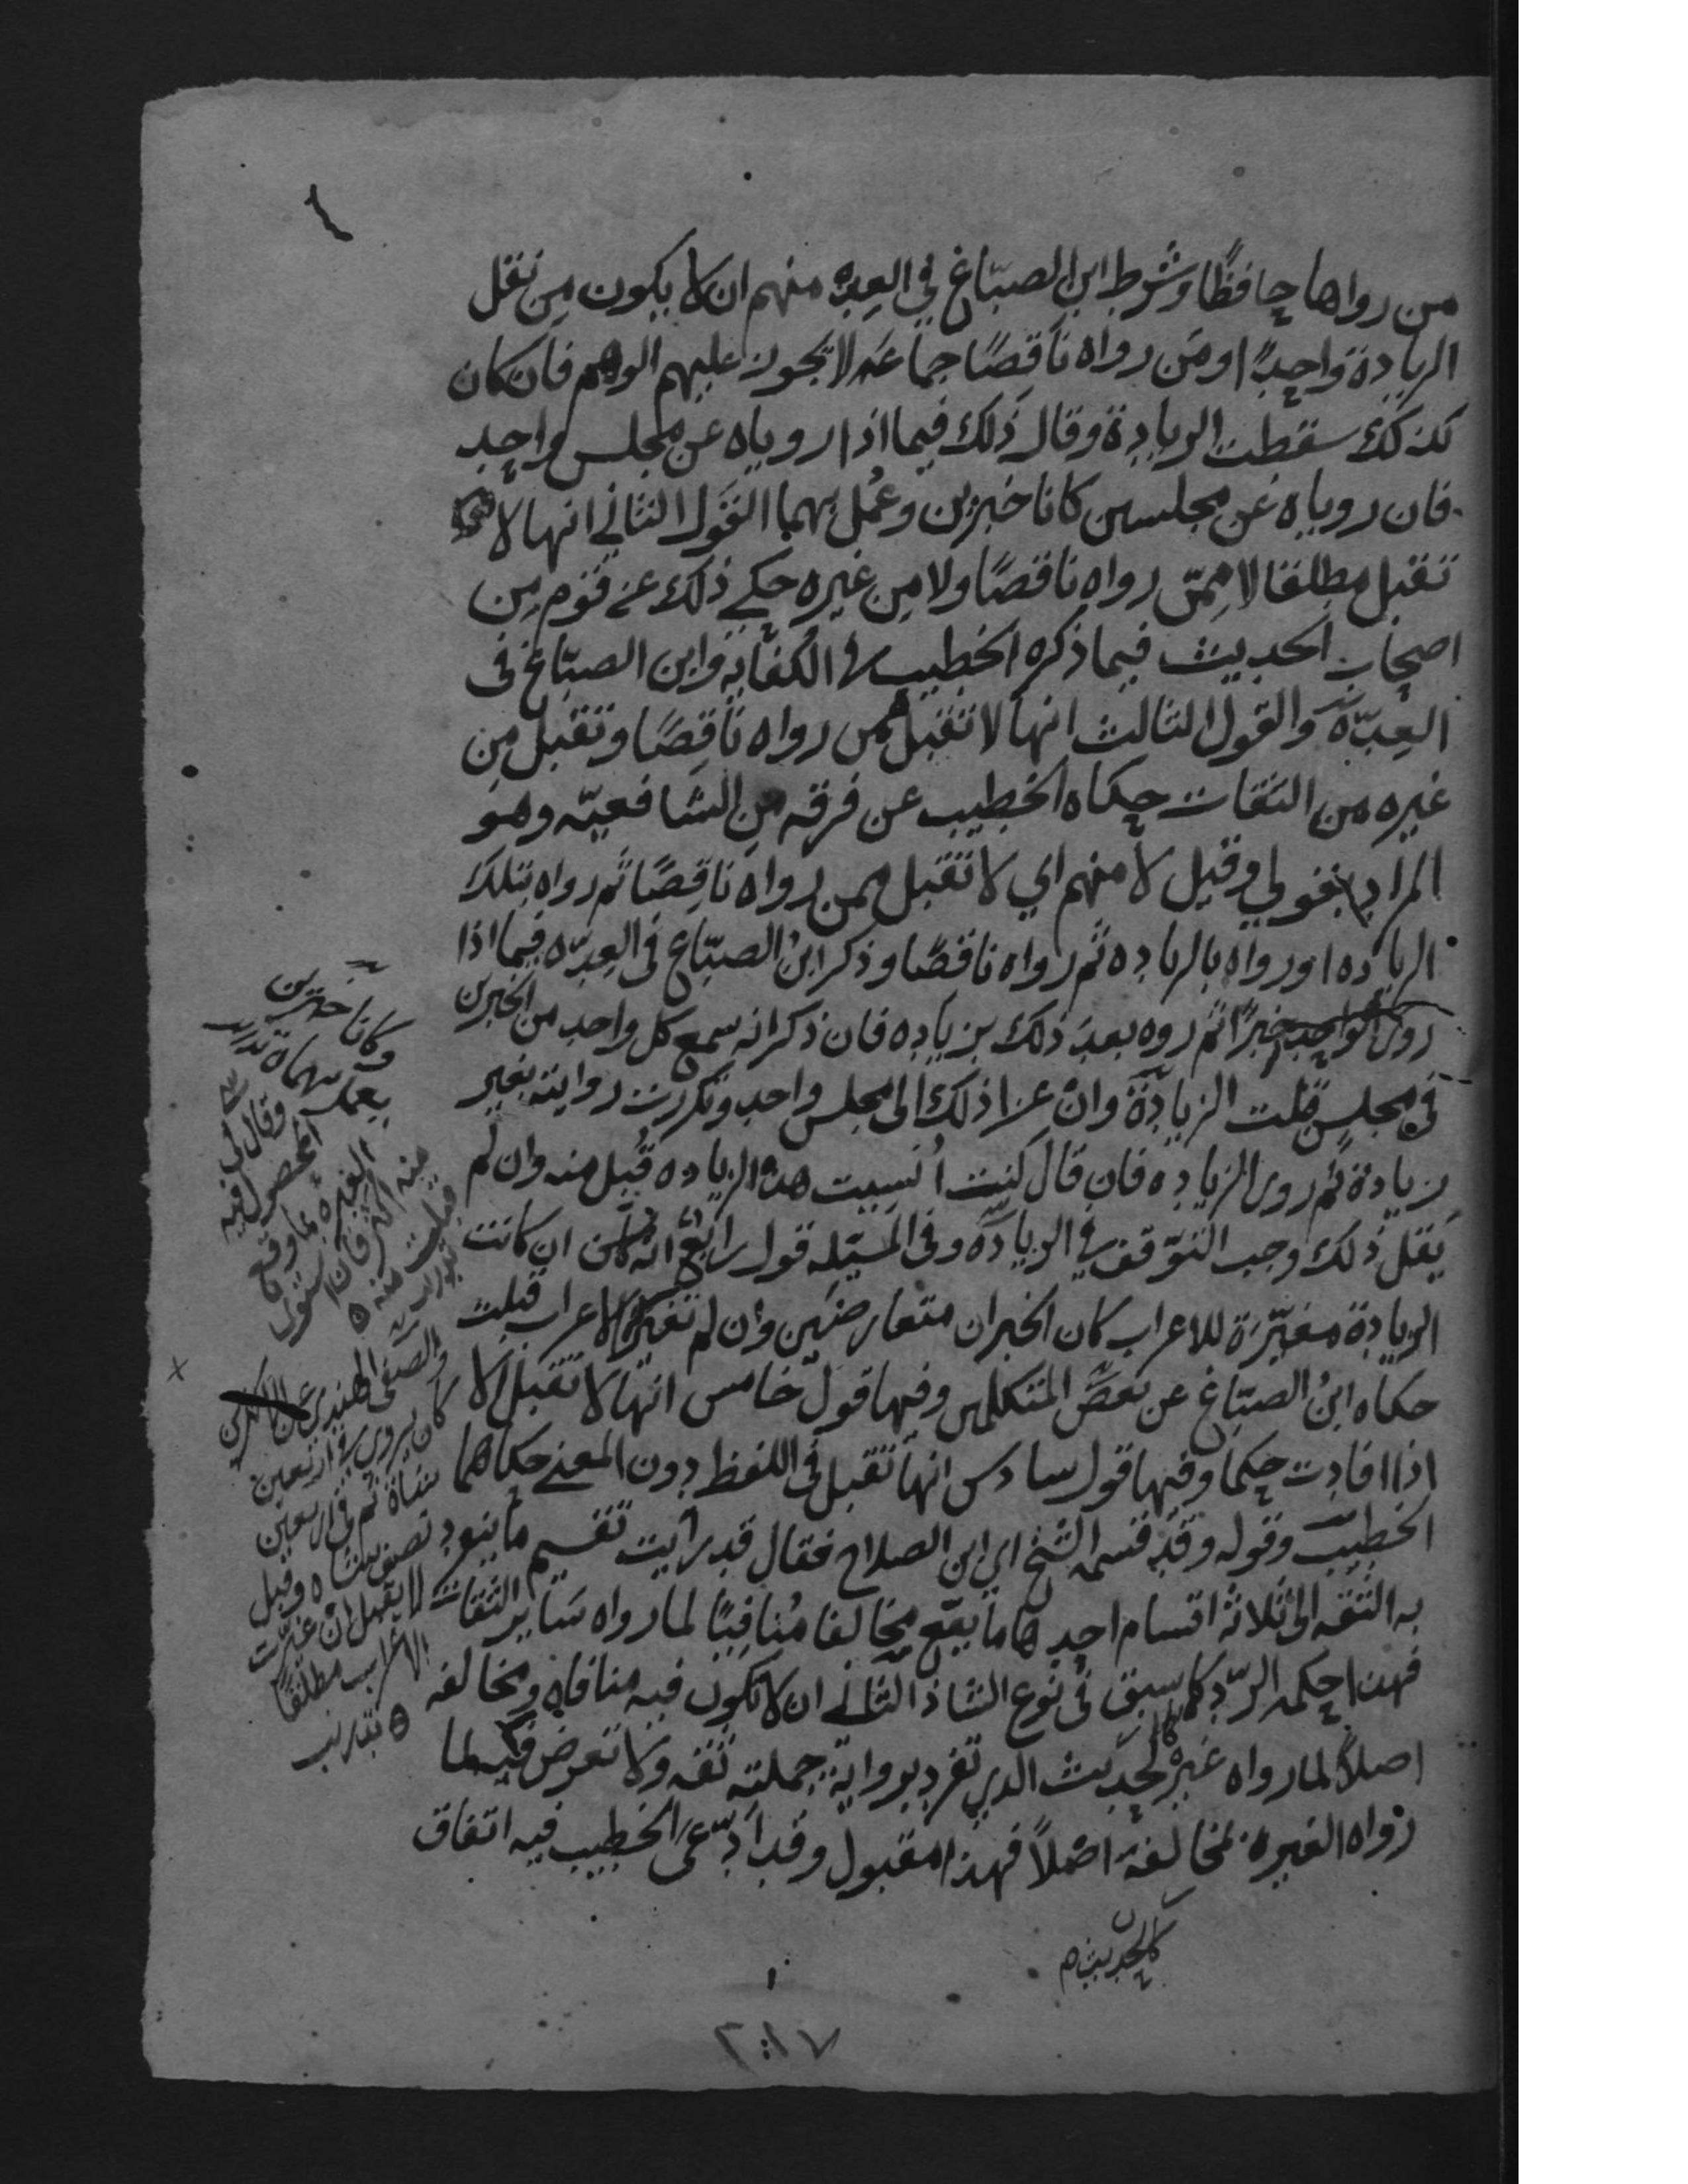 من رواها حافظًا وشرط ابن الصبّاغ في العدّه منهم ان لا يكون من نقل
الزيادة واحدًا ومَن رواه ناقصًا جماعه لا يجوز عليهم الوهم فان كان
كذلك سقطت الزيادة وقال ذلك فيما اذا روياه عن مجلس واحد
فان روياه عن مجلسين كانا خبرين وعُمل بهما القول الثاني انها لا
تقبل مطلقا لا ممّن رواه ناقصًا ولا مِن غيره حكى ذلك عن قوم مِن
اصحاب الحديث فيما ذكره الخطيب في الكفايه وابن الصبّاغ في
العِدّة والقول الثالث انها لا تقبل ممن رواه ناقِصًا وتقبل مِن
غيره من الثقات حكاه الخطيب عن فرقه مِن الشافعيّه وهو
المراد بقولي وقيل لا منهم اي لا تقبل ممن رواه ناقِصًا ثم رواه بتلك
الزياده او رواه بالزياده ثم رواه ناقصًا وذكر ابنُ الصبّاغ في العدّه فيما اذا
روى الواحد خبرًا ثم روه بعد ذلك بزياده فان ذكر انه سمع كل واحد من الخبرين
في مجلس قبلت الزيادة وان عزا ذلك الى مجلس واحد وتكررت روايته بغير
زيادة ثم روى الزياده فان قال كنت اُنسيت هذه الزياده قُبل منه وان لم
يَقل ذلك وجب التوّقف في الزيادة وفي المسئله قول رابع انه ان كانت
الزيادة مغيّرة للاعراب كان الخبران متعارضَين وان لم تغير الاعراب قبلت
حكاه ابنُ الصبّاغ عن بعض المتكلمين وفيها قول خامس انها لا تقبل الا
اذا افادت حكما وفيها قول سادس انها تقبل في اللفظ دون المعنى حكاهما
الخطيب وقوله وقد قسمه الشيخ اي ابن الصلاح فقال قد رأيت تقسيم ما ينفرد
به الثقه الى ثلاثة اقسام احدها ما يقع مخالفا مُنافيًا لما رواه سَاير الثقات
فهذا حكمه الرّد كما سبق في نوع الشاذ الثاني ان لا تكون فيه منافاه ومخالفه
اصلاً لما رواه غيره كالحديث الذي تفرد برواية جملته ثقه ولا تعرض فيه لما
رواه الغير بمخالفة اصْلاً فهذا مقبول وقد ادّعى الخطيب فيه اتفاق
كالحديث
وكانا خبرين
يعمل بهما تدريب
وقال في
المحصول فيه
العبره بما وقع
منه اكثر فان استوى
قبلت منه
تدريب
والصفي الهندي
كان يروى في اربعين
شاة ثم في اربعين
نصف شاه وقيل
لا يقبل ان غيرت
الاعراب مطلقًا
تدريب
٢٠١٧